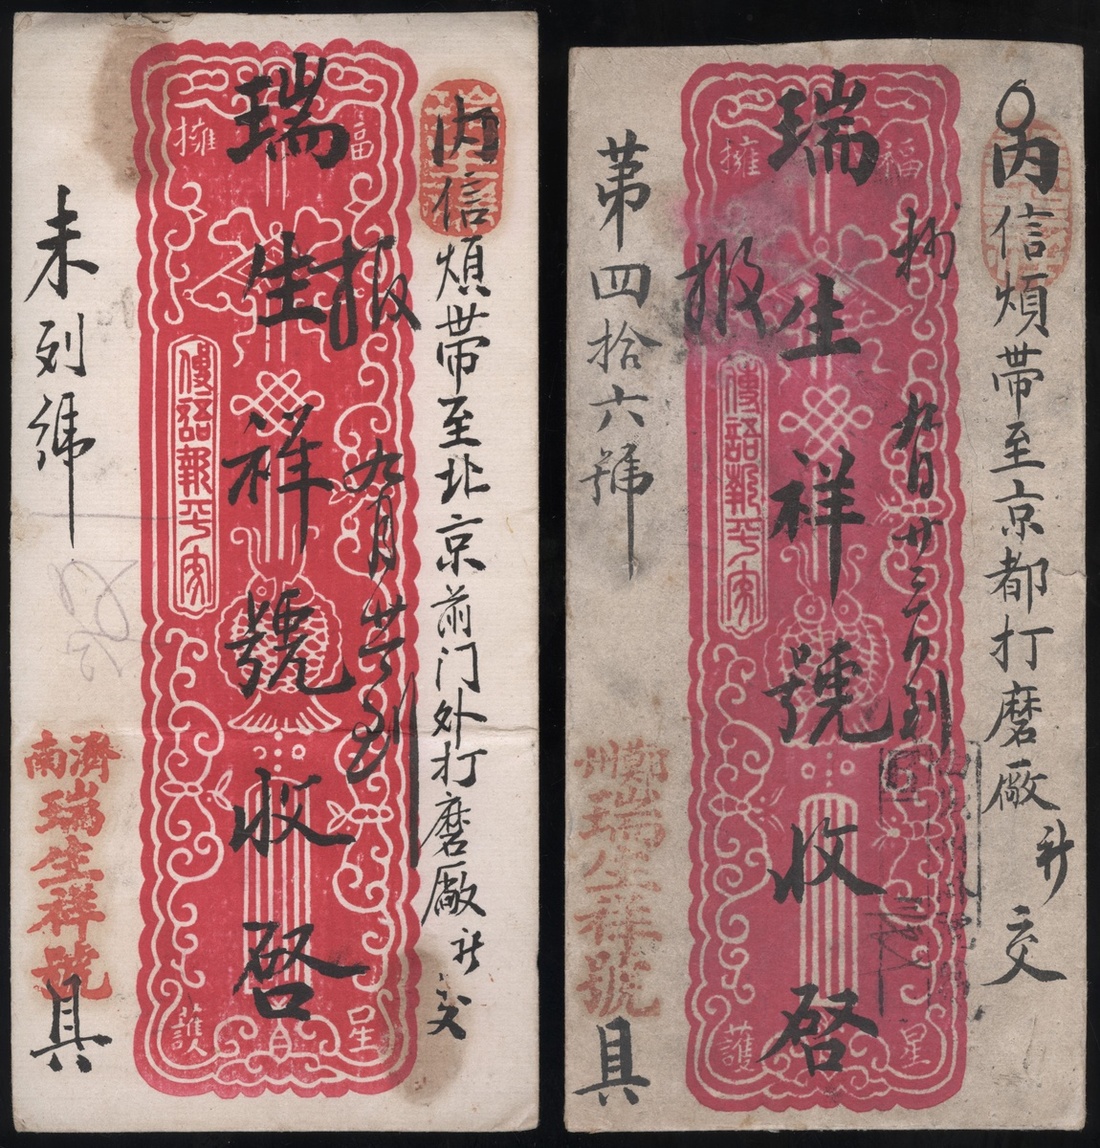 內信煩帶至北京前门外打磨厰
交
瑞生祥號收啓
九月
到
福星擁護
傳語報平安
未列號
濟南
瑞生祥號
具
內信煩帶至京都打磨厰
升
交
瑞生祥號收啓
九月廿三
到
福星擁護
傳語報平安
第四拾六號
鄭州
瑞生祥號
具